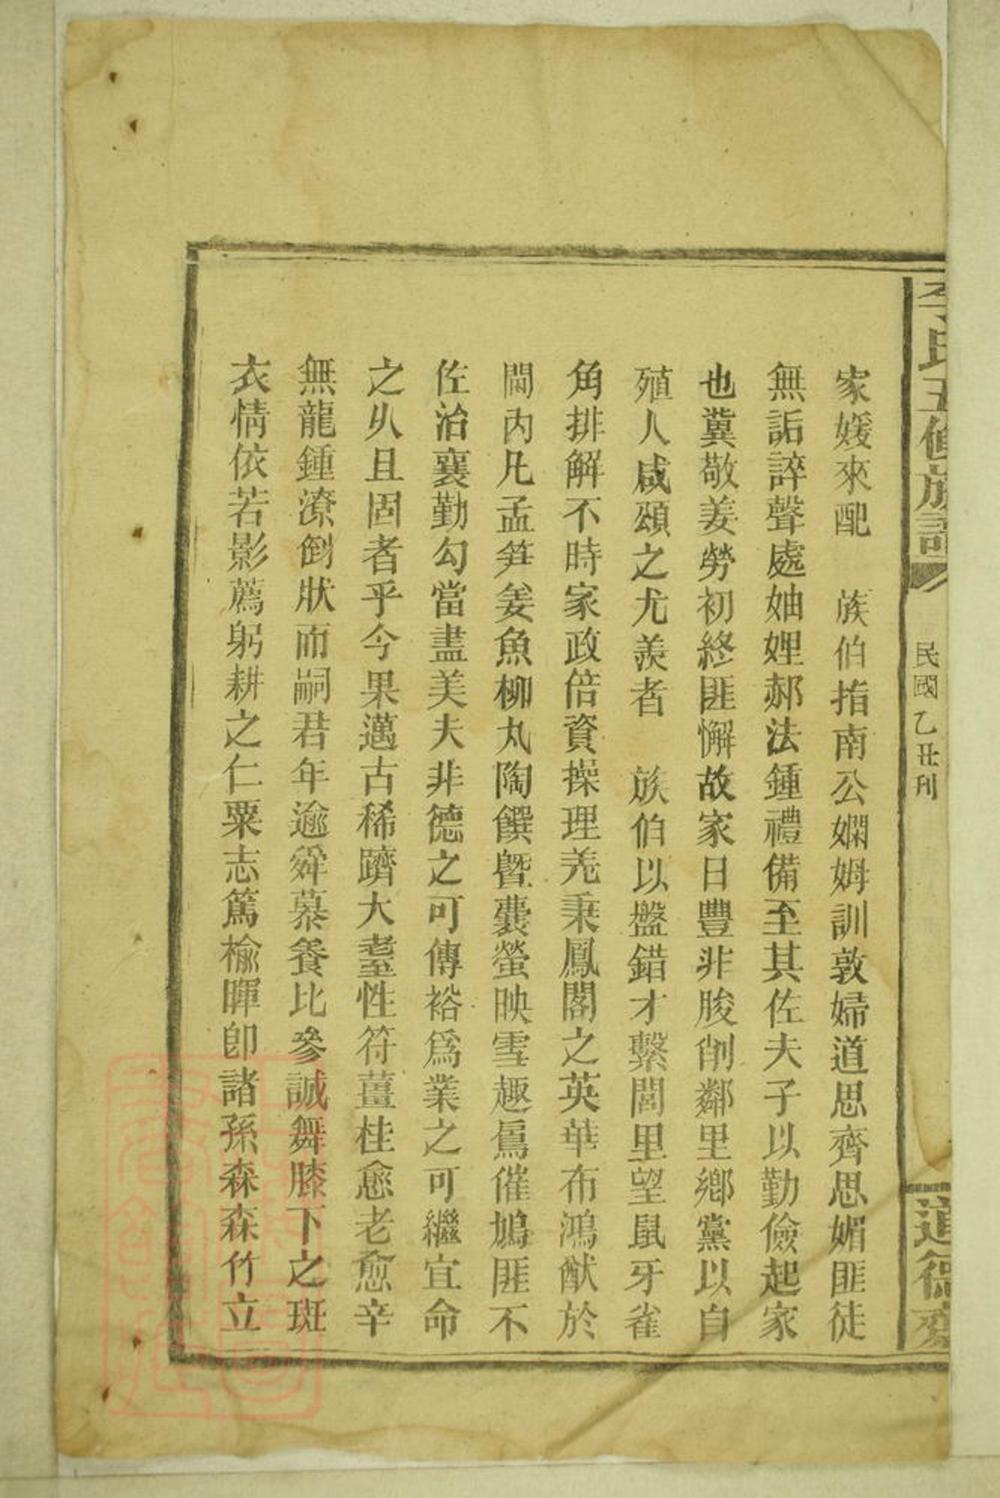 李氏五修族譜
民國乙丑刊
道德齋
家媛來配　族伯指南公嫻姆訓敦婦道思齊思媚匪徒
無詬誶聲處妯娌郝法鍾禮備至其佐夫子以勤儉起家
也冀敬姜勞初終匪懈故家日豐非朘削鄰里鄉黨以自
殖人咸頌之尤羨者　族伯以盤錯才繫閭里望鼠牙雀
角排解不時家政倍資操理羌秉鳳閣之英華布鴻猷於
閫內凡孟笋姜魚柳丸陶饌曁囊螢映雪趣鳥催鳩匪不
佐治襄勤勾當盡美夫非德之可傳裕爲業之可繼宜命
之乆且固者乎今果邁古稀躋大耋性符薑桂愈老愈辛
無龍鍾潦倒狀而嗣君年逾舜慕養比參誠舞膝下之斑
衣情依若影薦躬耕之仁粟志篤榆暉卽諸孫森森竹立